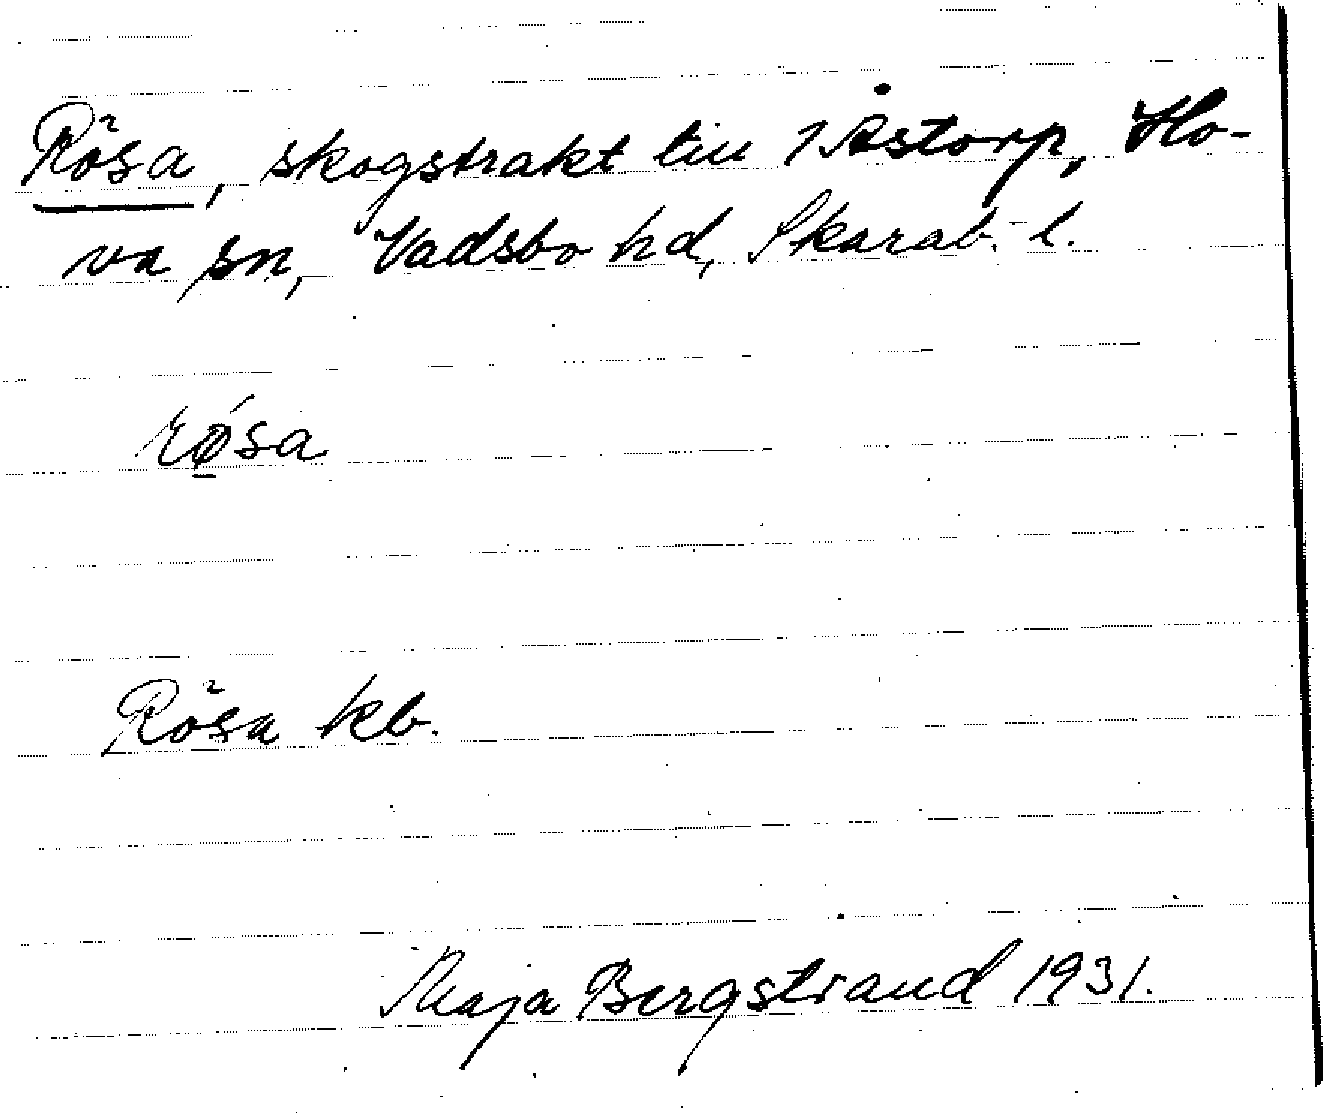 Rösa, skogstrakt till 1 Åstorp, Ho-
va sn, Vadsbo hd, Skarab. l.
rǿ̱sa
Rösa kb.
Maja Bergstrand 1931.